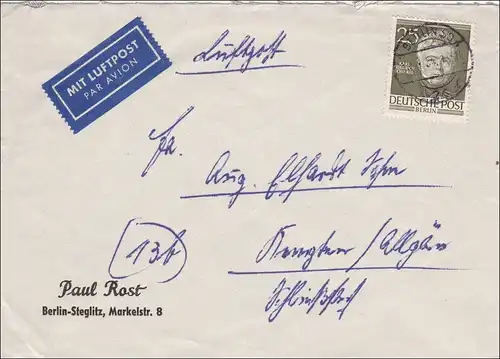 MIT LUFTPOST
PAR AVION
Luftpost
25
DEUTSCHE POST
BERLIN
Fa.
Aug. Elhardt Sohn
(13b)
Kempten/Allgäu
Paul Rost
Berlin-Steglitz, Markelstr. 8